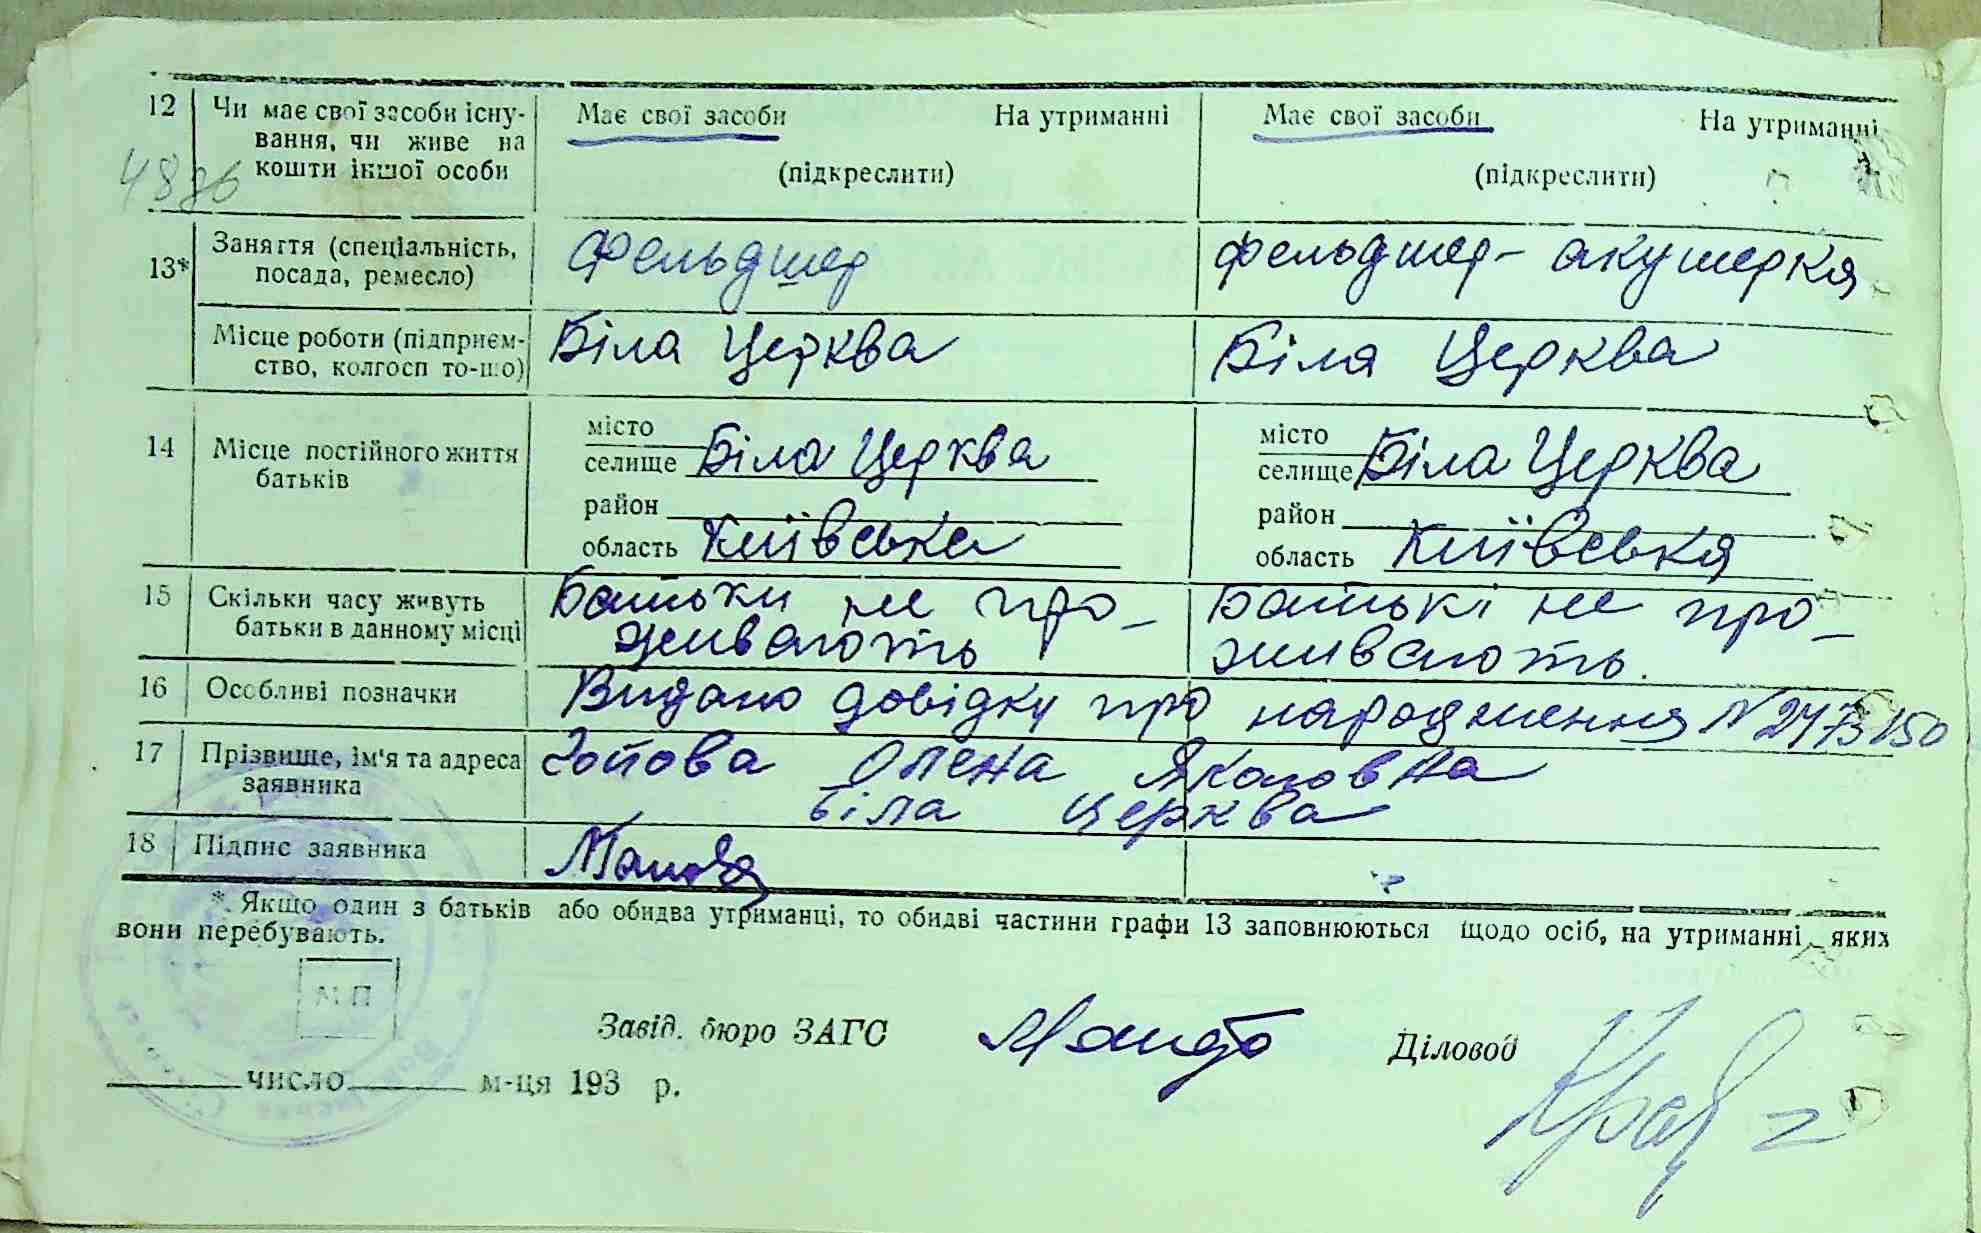 12 Чи має свої засоби існу- Має свої засоби На утриманні Має свої засоби На утриманні
вання, чи живе на
кошти іншої особи (підкреслити) (підкреслити)
13* Заняття (спеціальність, фельдшер фельдшер-акушерка
посада, ремесло)
Місце роботи (підприєм- Біла Церква Біла Церква
ство, колгосп то-що)
14 Місце постійного життя місто місто
батьків селище Біла Церква селище Біла Церква
район район
область Київська область Київська
15 Скільки часу живуть Батьки не про- Батькі не про-
батьки в данному місці живають живають.
16 Особливі позначки Видано довідку про народження N 2473150
17 Прізвище, ім'я та адреса Олена
заявника Біла Церква
18 Підпис заявника
*. Якщо один з батьків або обидва утриманці, то обидві частини графи 13 заповнюються щодо осіб, на утриманні яких
вони перебувають.
М П
Завід. бюро ЗАГС Діловод
число м-ця 193 р.